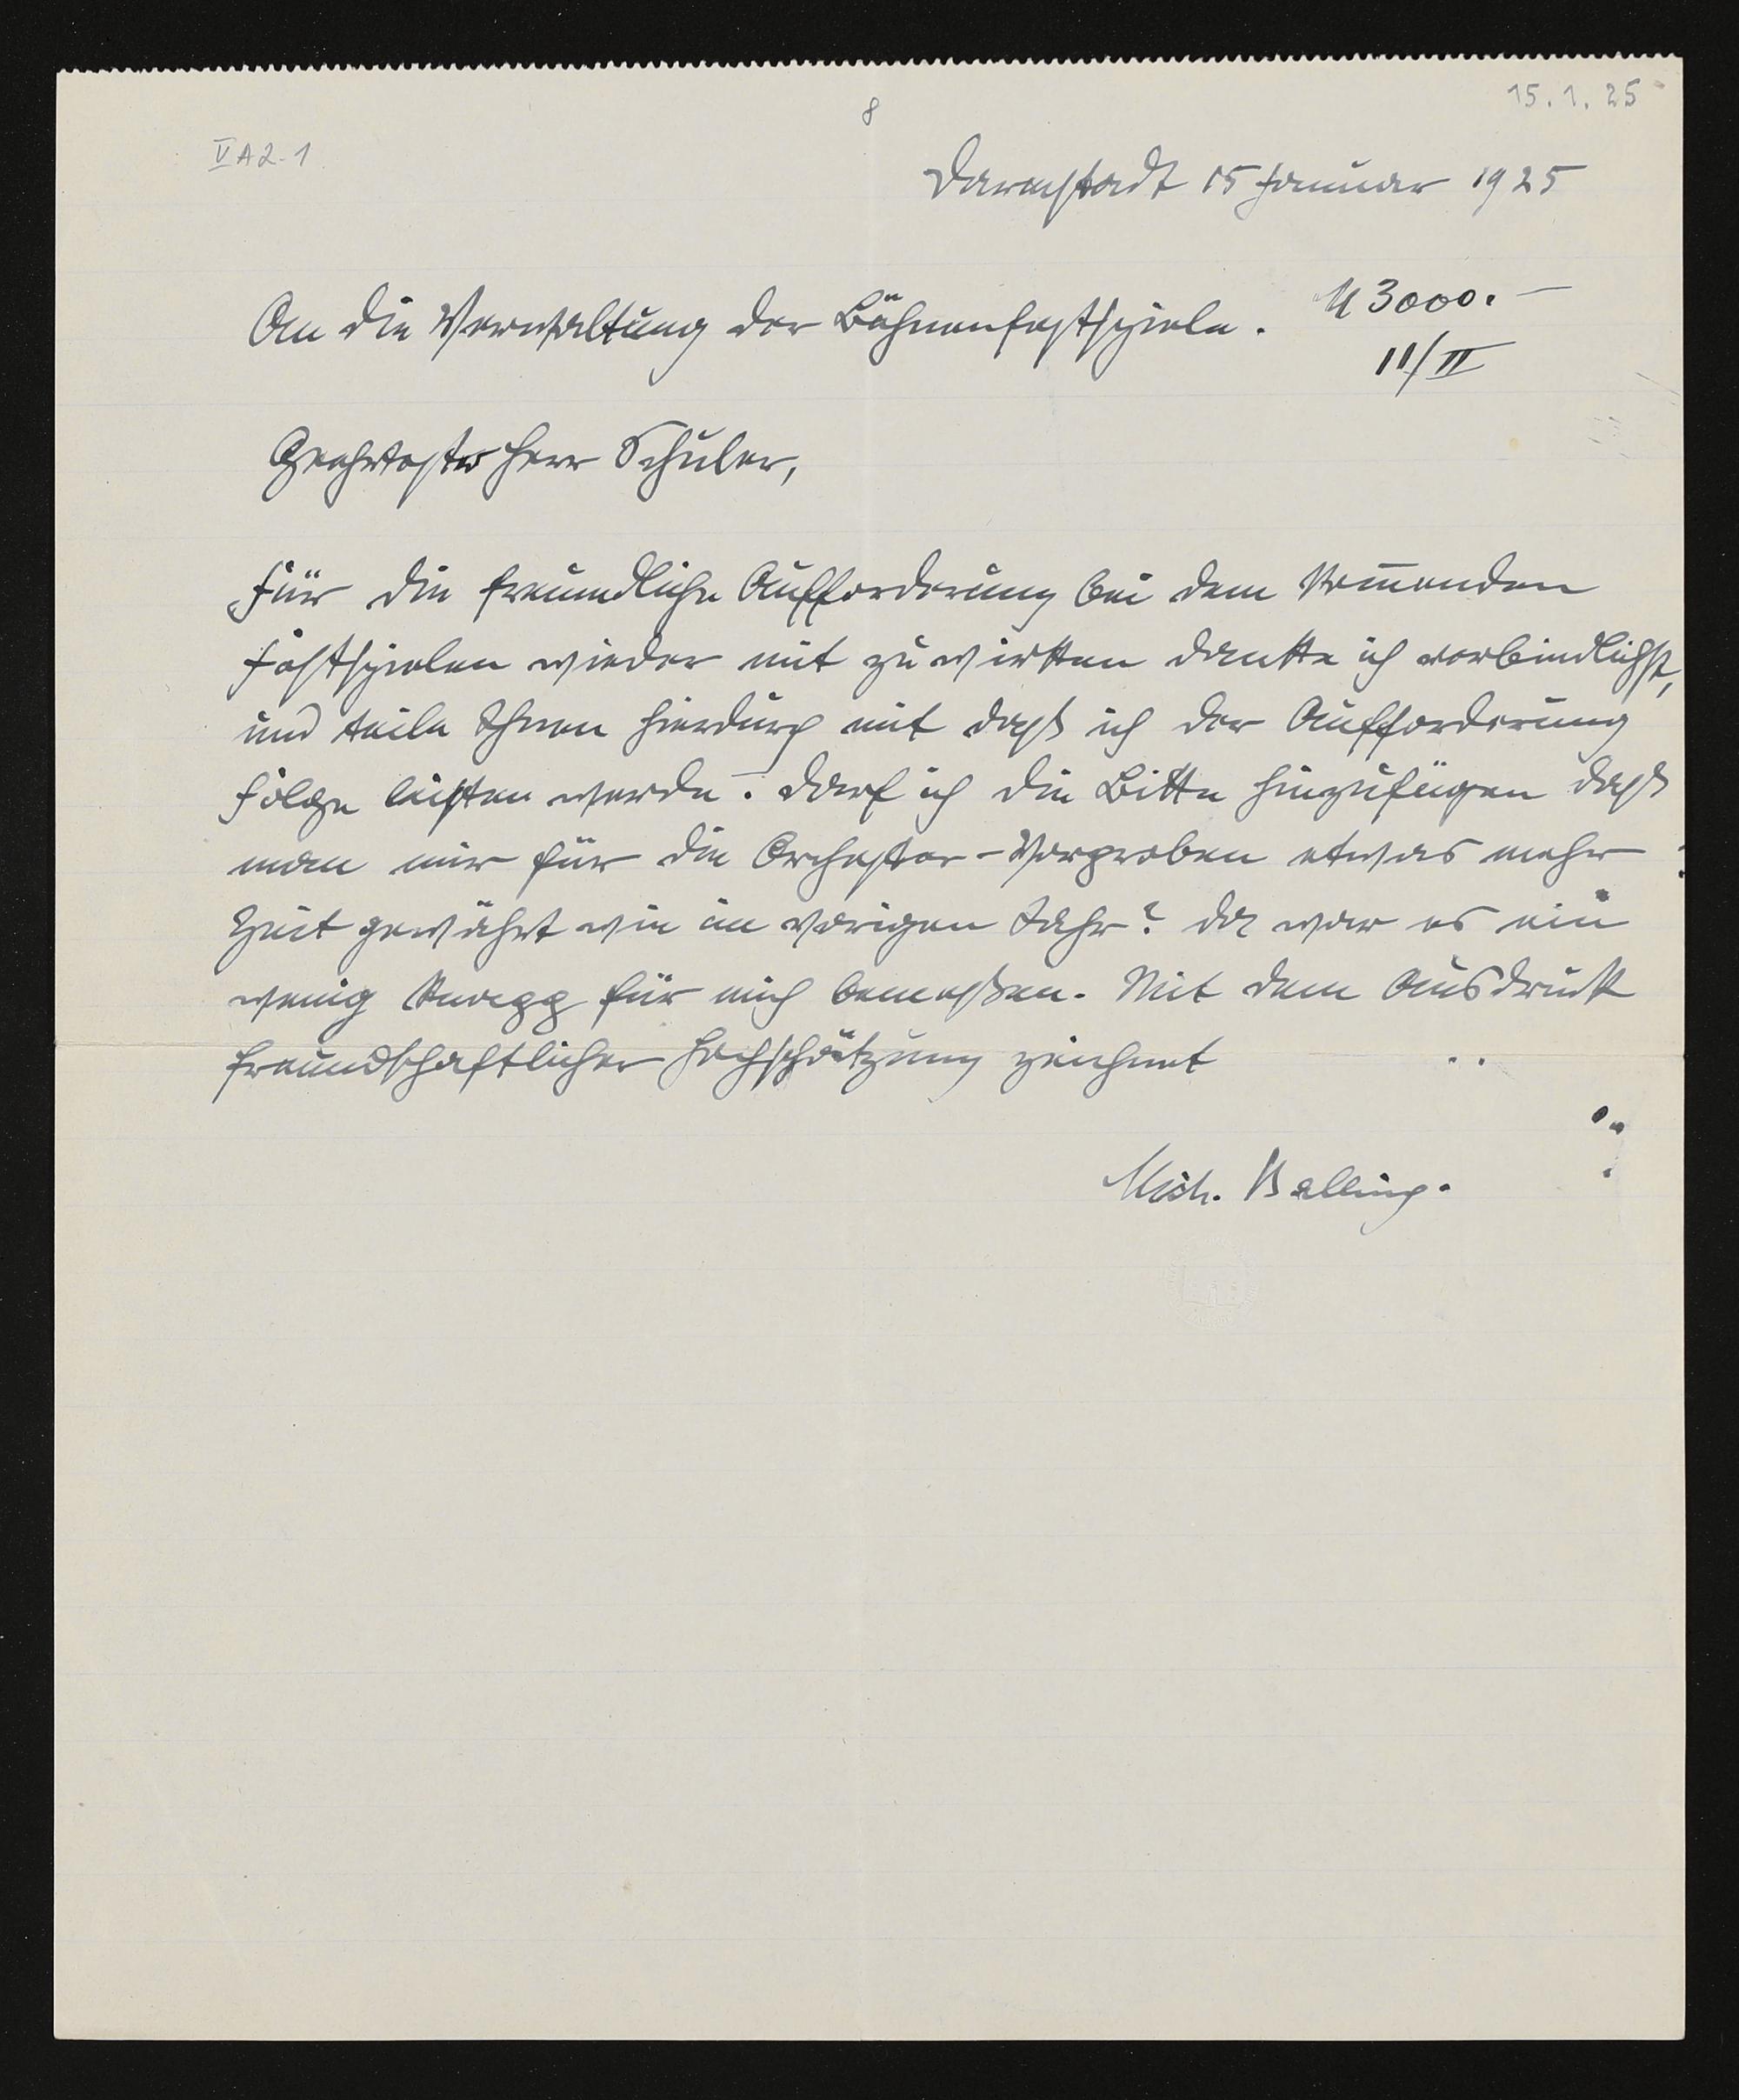 15. 1. 25
8
V A 2-1
Darmstadt 15 Januar 1925
An die Verwaltung der Bühnenfestspiele.
M 3000.—
11/III
Geehrtester Herr Schuler,
Für die freundliche Aufforderung bei dem komenden
Festspielen wieder mit zu wirken danke ich verbindlichst,
und teile Ihnen hierdurch mit daß ich der Aufforderung
Folge leisten werde. Darf ich die Bitte hinzufügen daß
man mir für die Orchester-Vorproben etwas mehr
Zeit gewährt wie im vorigen Jahr? Da war es ein
wenig knapp für mich bemeßen. Mit dem Ausdruck
freundschaftlicher Hochschätzung zeichnet
Mich. Balling.